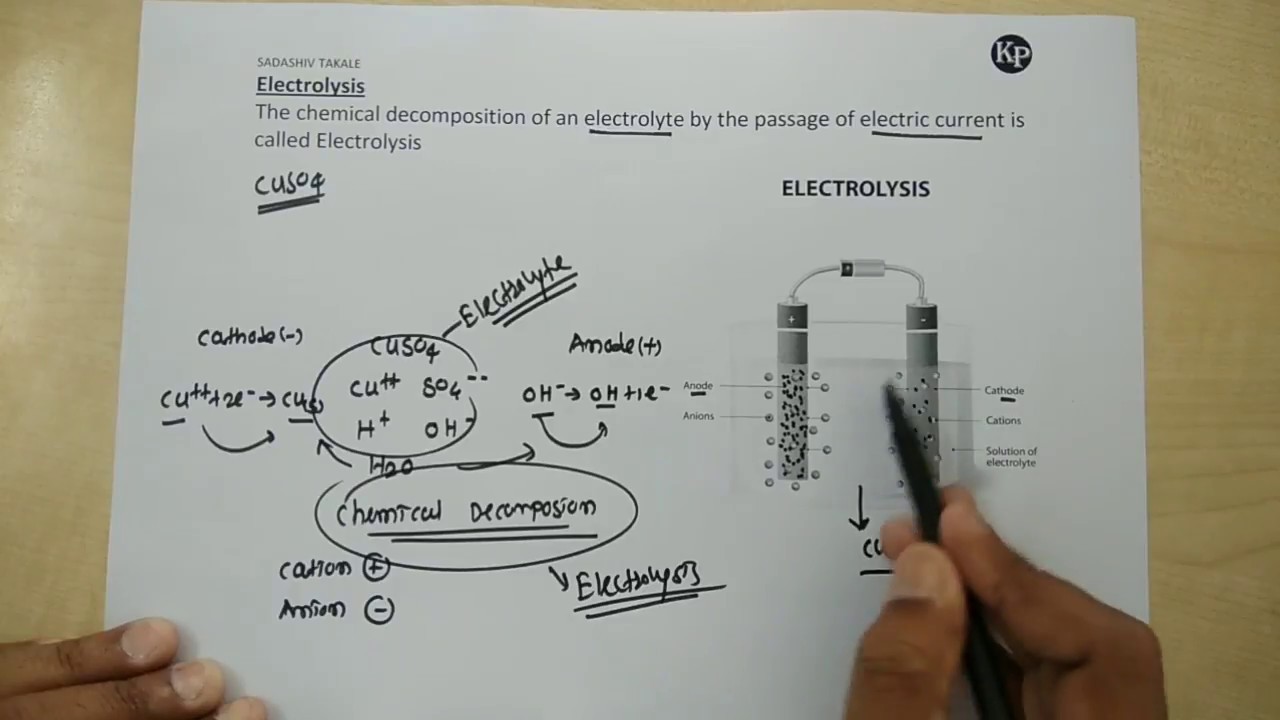 KP
SADASHIV TAKALE
Electrolysis
The chemical decomposition of an electrolyte by the passage of electric current is
called Electrolysis
CuSO4
ELECTROLYSIS
Electrolyte
Cathode (-)
CuSO4
Anode (+)
Cu++ + 2e- → Cu(s)
Cu++ SO4--
OH- → OH + 1e-
H+ OH-
H2O
+
-
Anode
Anions
Cathode
Cations
Solution of
electrolyte
Chemical Decomposion
Cation +
Anion -
Electrolysis